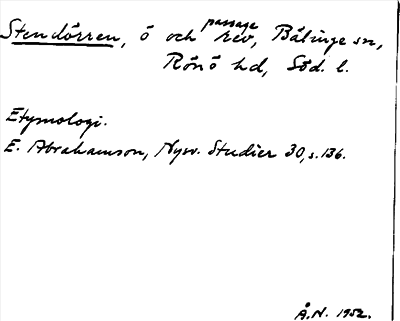 Stendörren, ö och passage rev, Bälinge sn,
Rönö hd, Söd. l.
Etymologi.
E. Abrahamson, Nysv. Studier 30, s. 136.
Å.N. 1952.